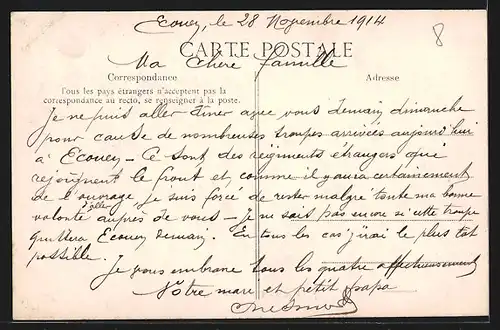 Ecouen, le 28 Novembre 1914
8
CARTE POSTALE
Ma chère famille
Correspondance
Adresse
Tous les pays étrangers n'acceptent pas la
correspondance au recto, se renseigner à la poste.
Je ne puis aller diner avec vous demain dimanche
pour cause de nombreuses troupes arrivées aujourd'hui
à Ecouen - Ce sont des régiments étrangers qui
rejoignent le front et comme il y aura certainement
de l'ouvrage je suis forcé de rester malgré toute ma bonne
volonté d'aller auprès de vous - je ne sais pas encore si cette troupe
quittera Ecouen demain. En tous les cas j'irai le plus tôt
possible.
Je vous embrasse tous les quatre affectueusement
Votre mari et petit papa